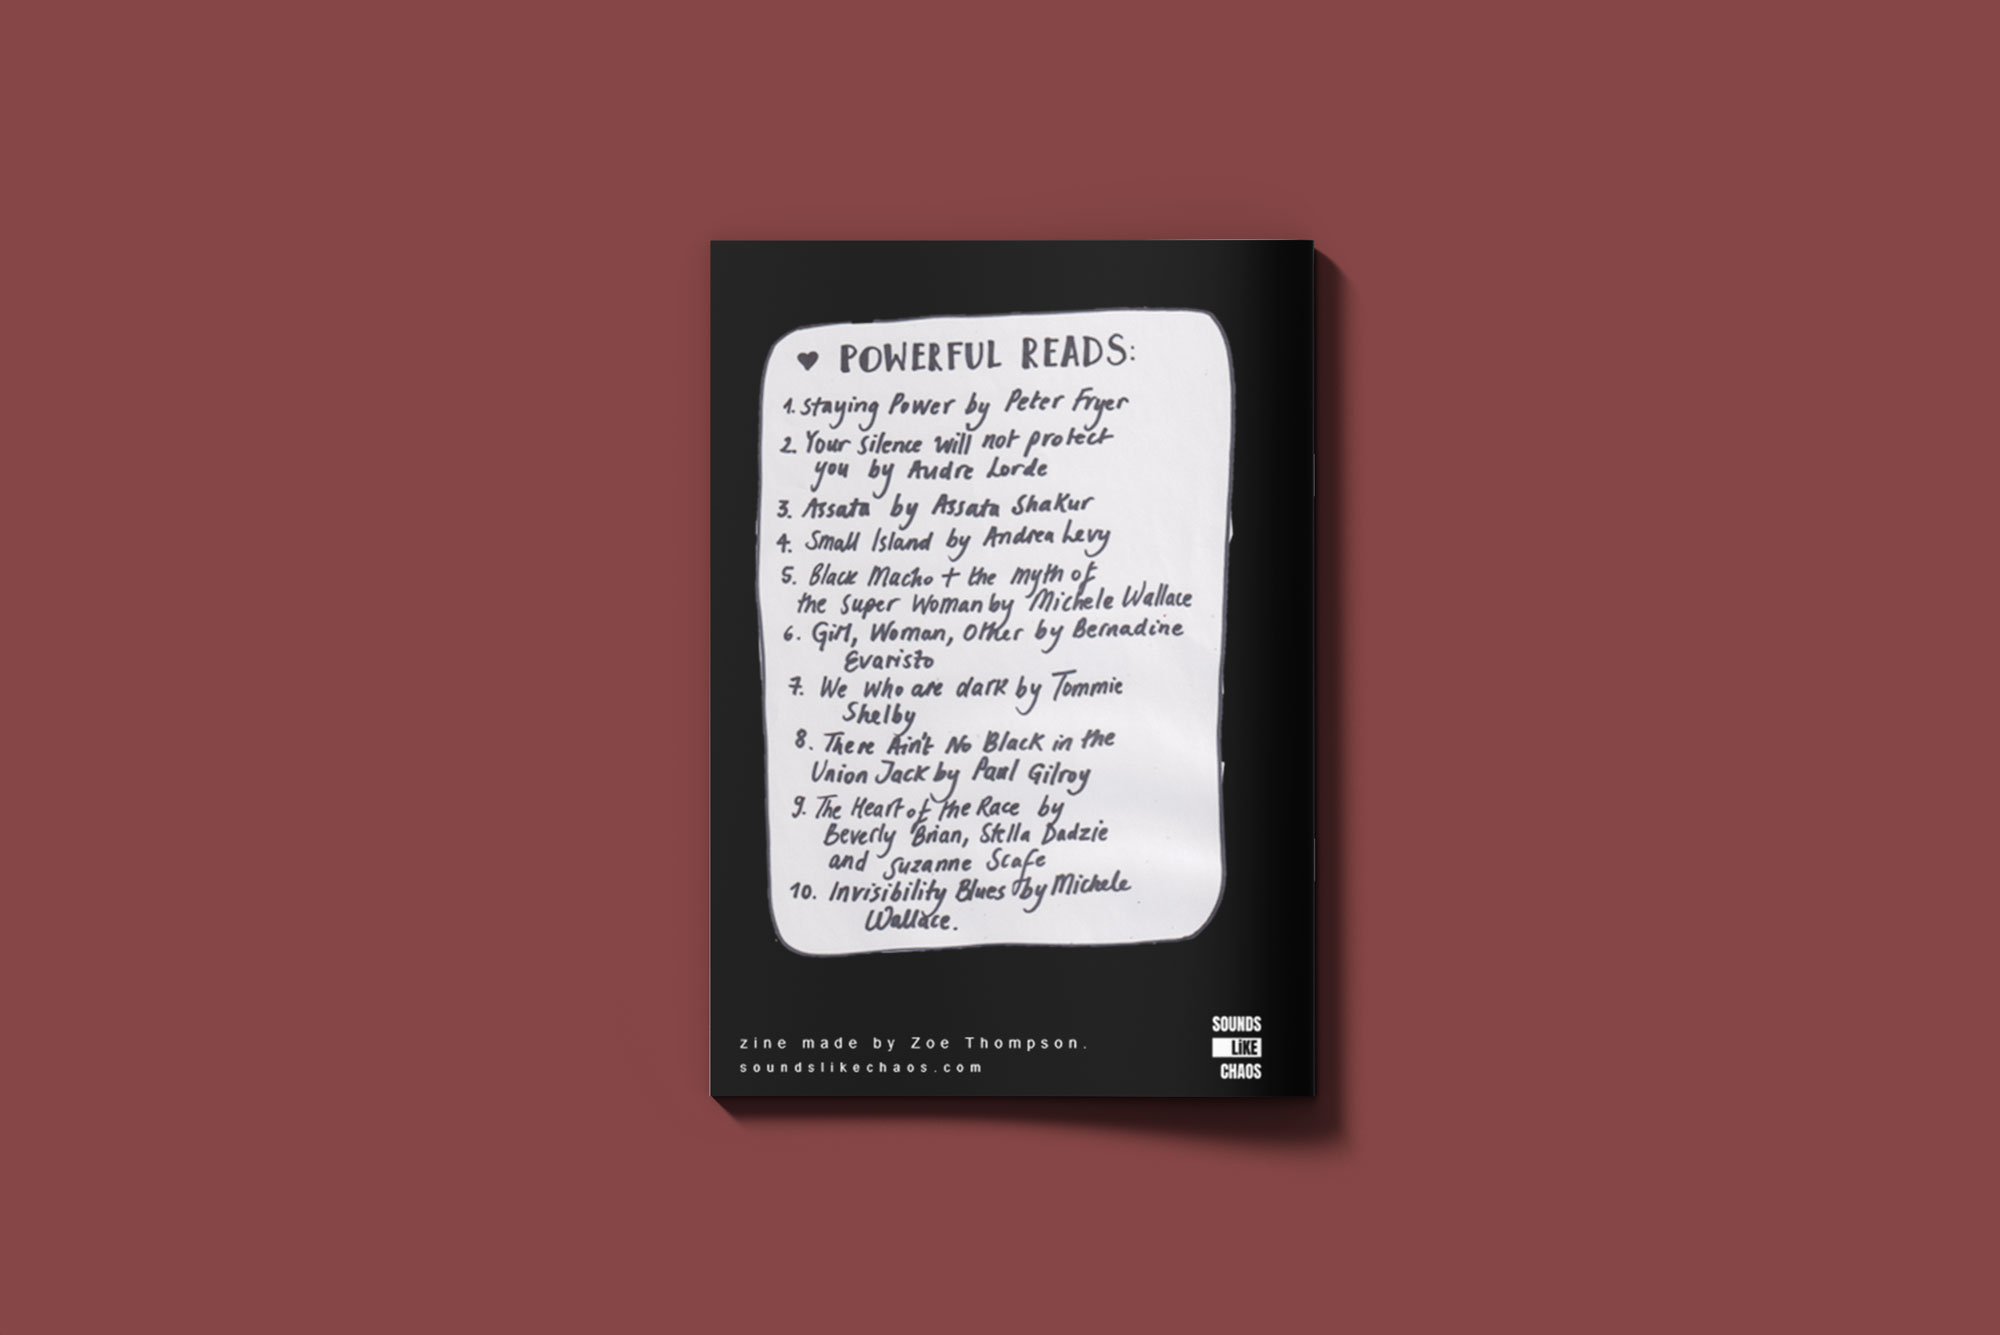 ♥ POWERFUL READS:
1. Staying Power by Peter Fryer
2. Your Silence will not protect
you by Audre Lorde
3. Assata by Assata Shakur
4. Small Island by Andrea Levy
5. Black Macho + the myth of
the Super Woman by Michele Wallace
6. Girl, Woman, Other by Bernadine
Evaristo
7. We who are dark by Tommie
Shelby
8. There Ain't No Black in the
Union Jack by Paul Gilroy
9. The Heart of the Race by
Beverly Brian, Stella Dadzie
and Suzanne Scafe
10. Invisibility Blues by Michele
Wallace.
zine made by Zoe Thompson.
soundslikechaos.com
SOUNDS
LiKE
CHAOS